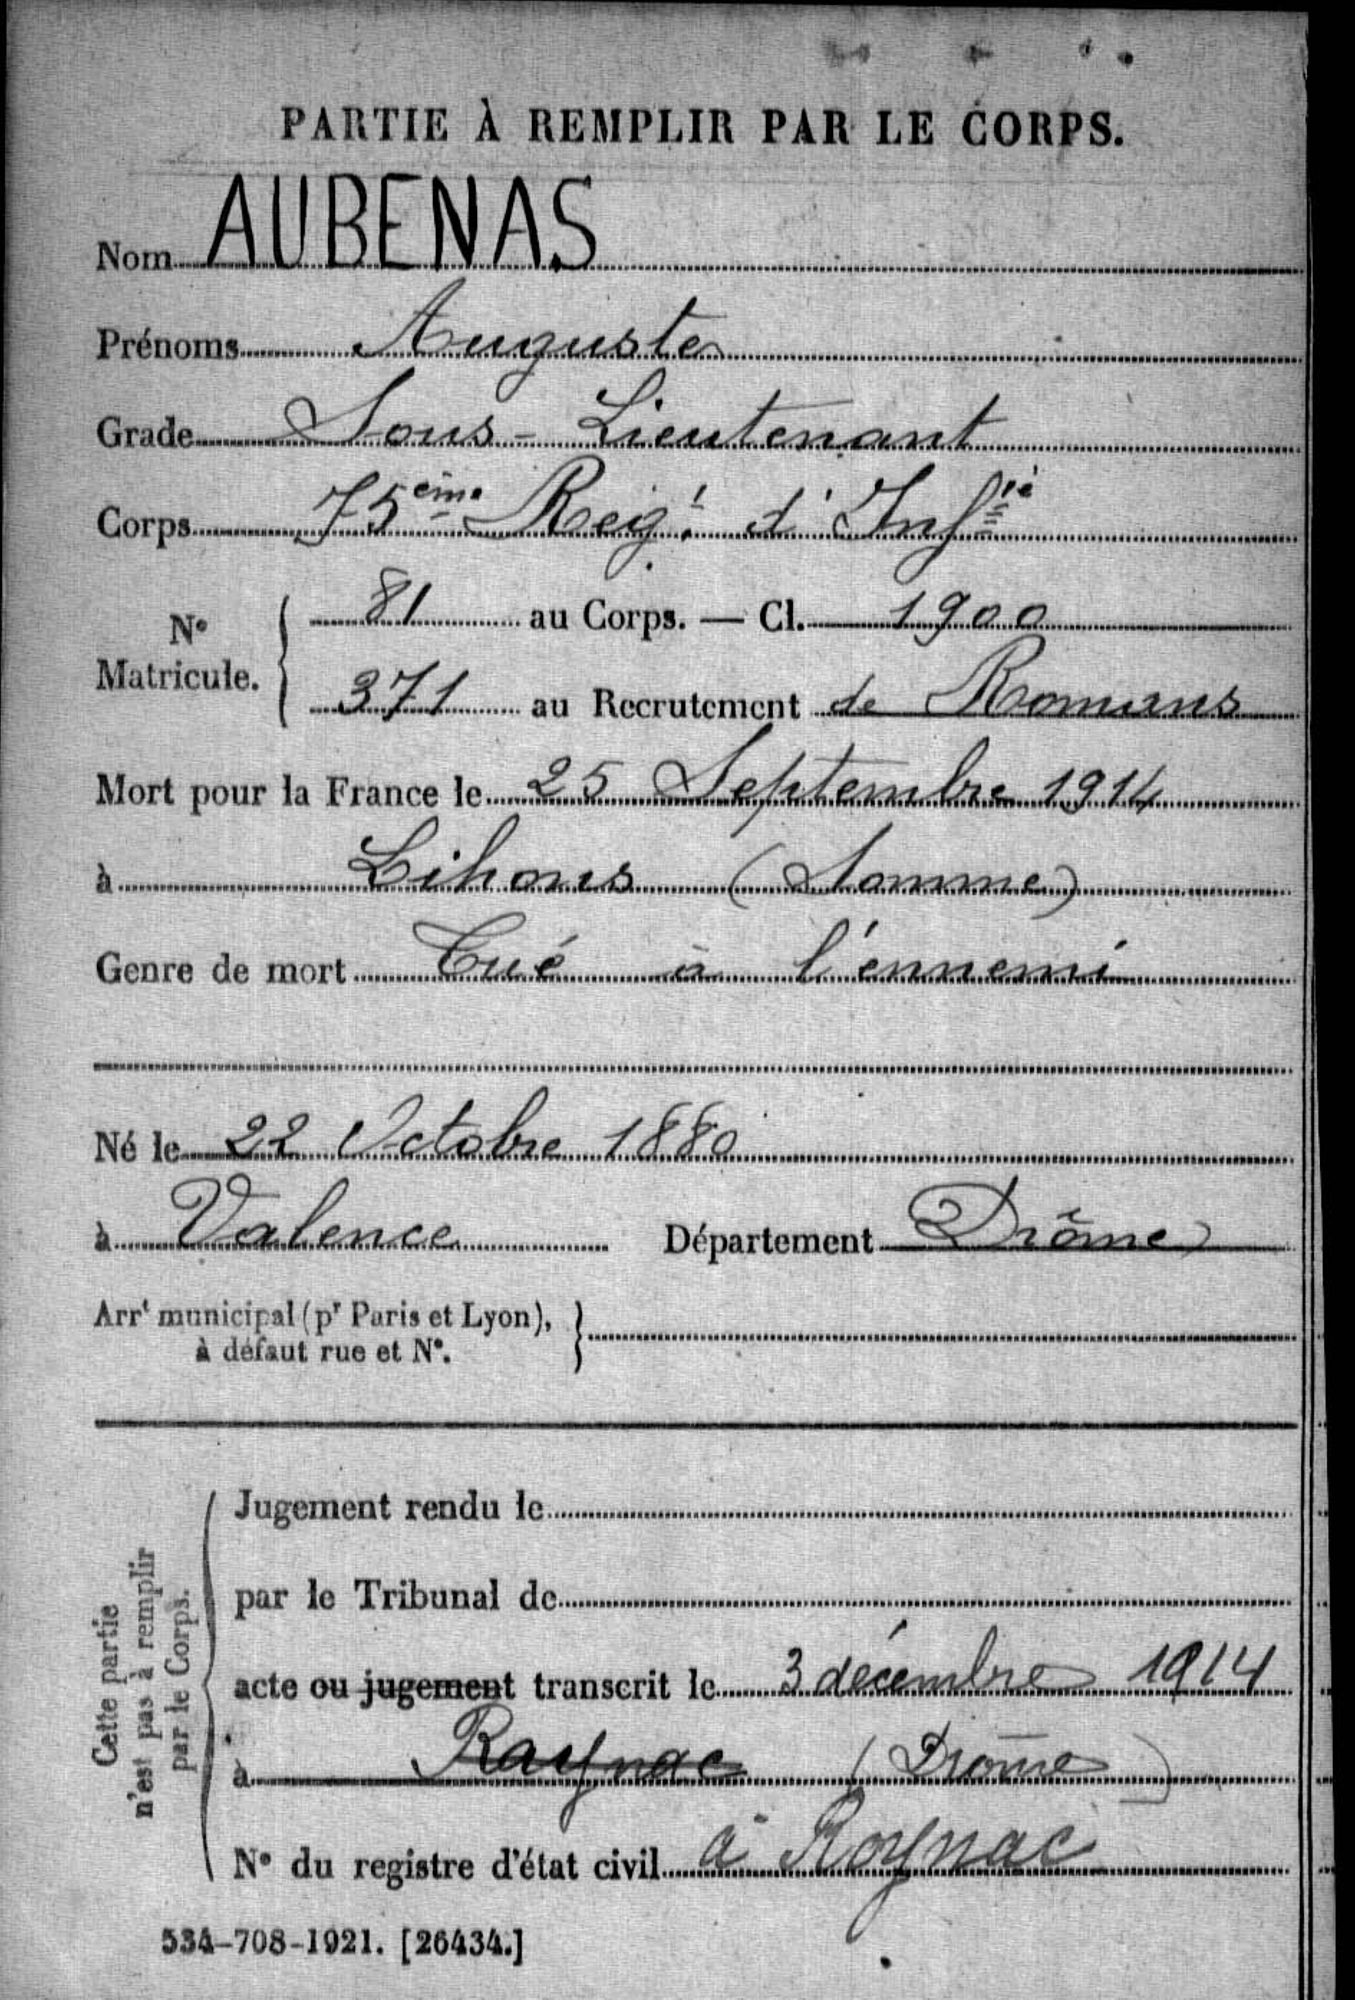 PARTIE À REMPLIR PAR LE CORPS.
Nom AUBENAS
Prénoms Auguste
Grade Sous-Lieutenant
Corps 75ème Reigt d'Infie
No Matricule. 81 au Corps. — Cl. 1900
371 au Recrutement de Romans
Mort pour la France le 25 Septembre 1914
à Lihons (Somme)
Genre de mort Tué à l'ennemi
Né le 22 Octobre 1880
à Valence Département Drôme
Arrt municipal (pr Paris et Lyon),
à défaut rue et No.
Cette partie
n'est pas à remplir
par le Corps.
Jugement rendu le
par le Tribunal de
acte ou jugement transcrit le 3 décembre 1914
à Raynac (Drôme)
No du registre d'état civil à Roynac
534-708-1921. [26434.]